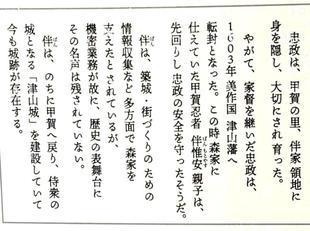 忠政は、甲賀の里、伴家領地に
身を隠し、大切にされ育った。
やがて、家督を継いだ忠政は、
1603年美作国 津山藩へ
転封となった。この時森家に
仕えていた甲賀忍者 伴惟安 親子は、
ばんもとやす
先回りし忠政の安全を守ったそうだ。
伴は、築城・街づくりの ための
ばん
情報収集など 多方面で 森家を
支えたと されているが、
機密業務が故に、歴史の表舞台に
その名声は残されていない。
伴は、のちに甲賀へ戻り、侍衆の
ばん
城となる「津山城」を建設していて
今も城跡が存在する。